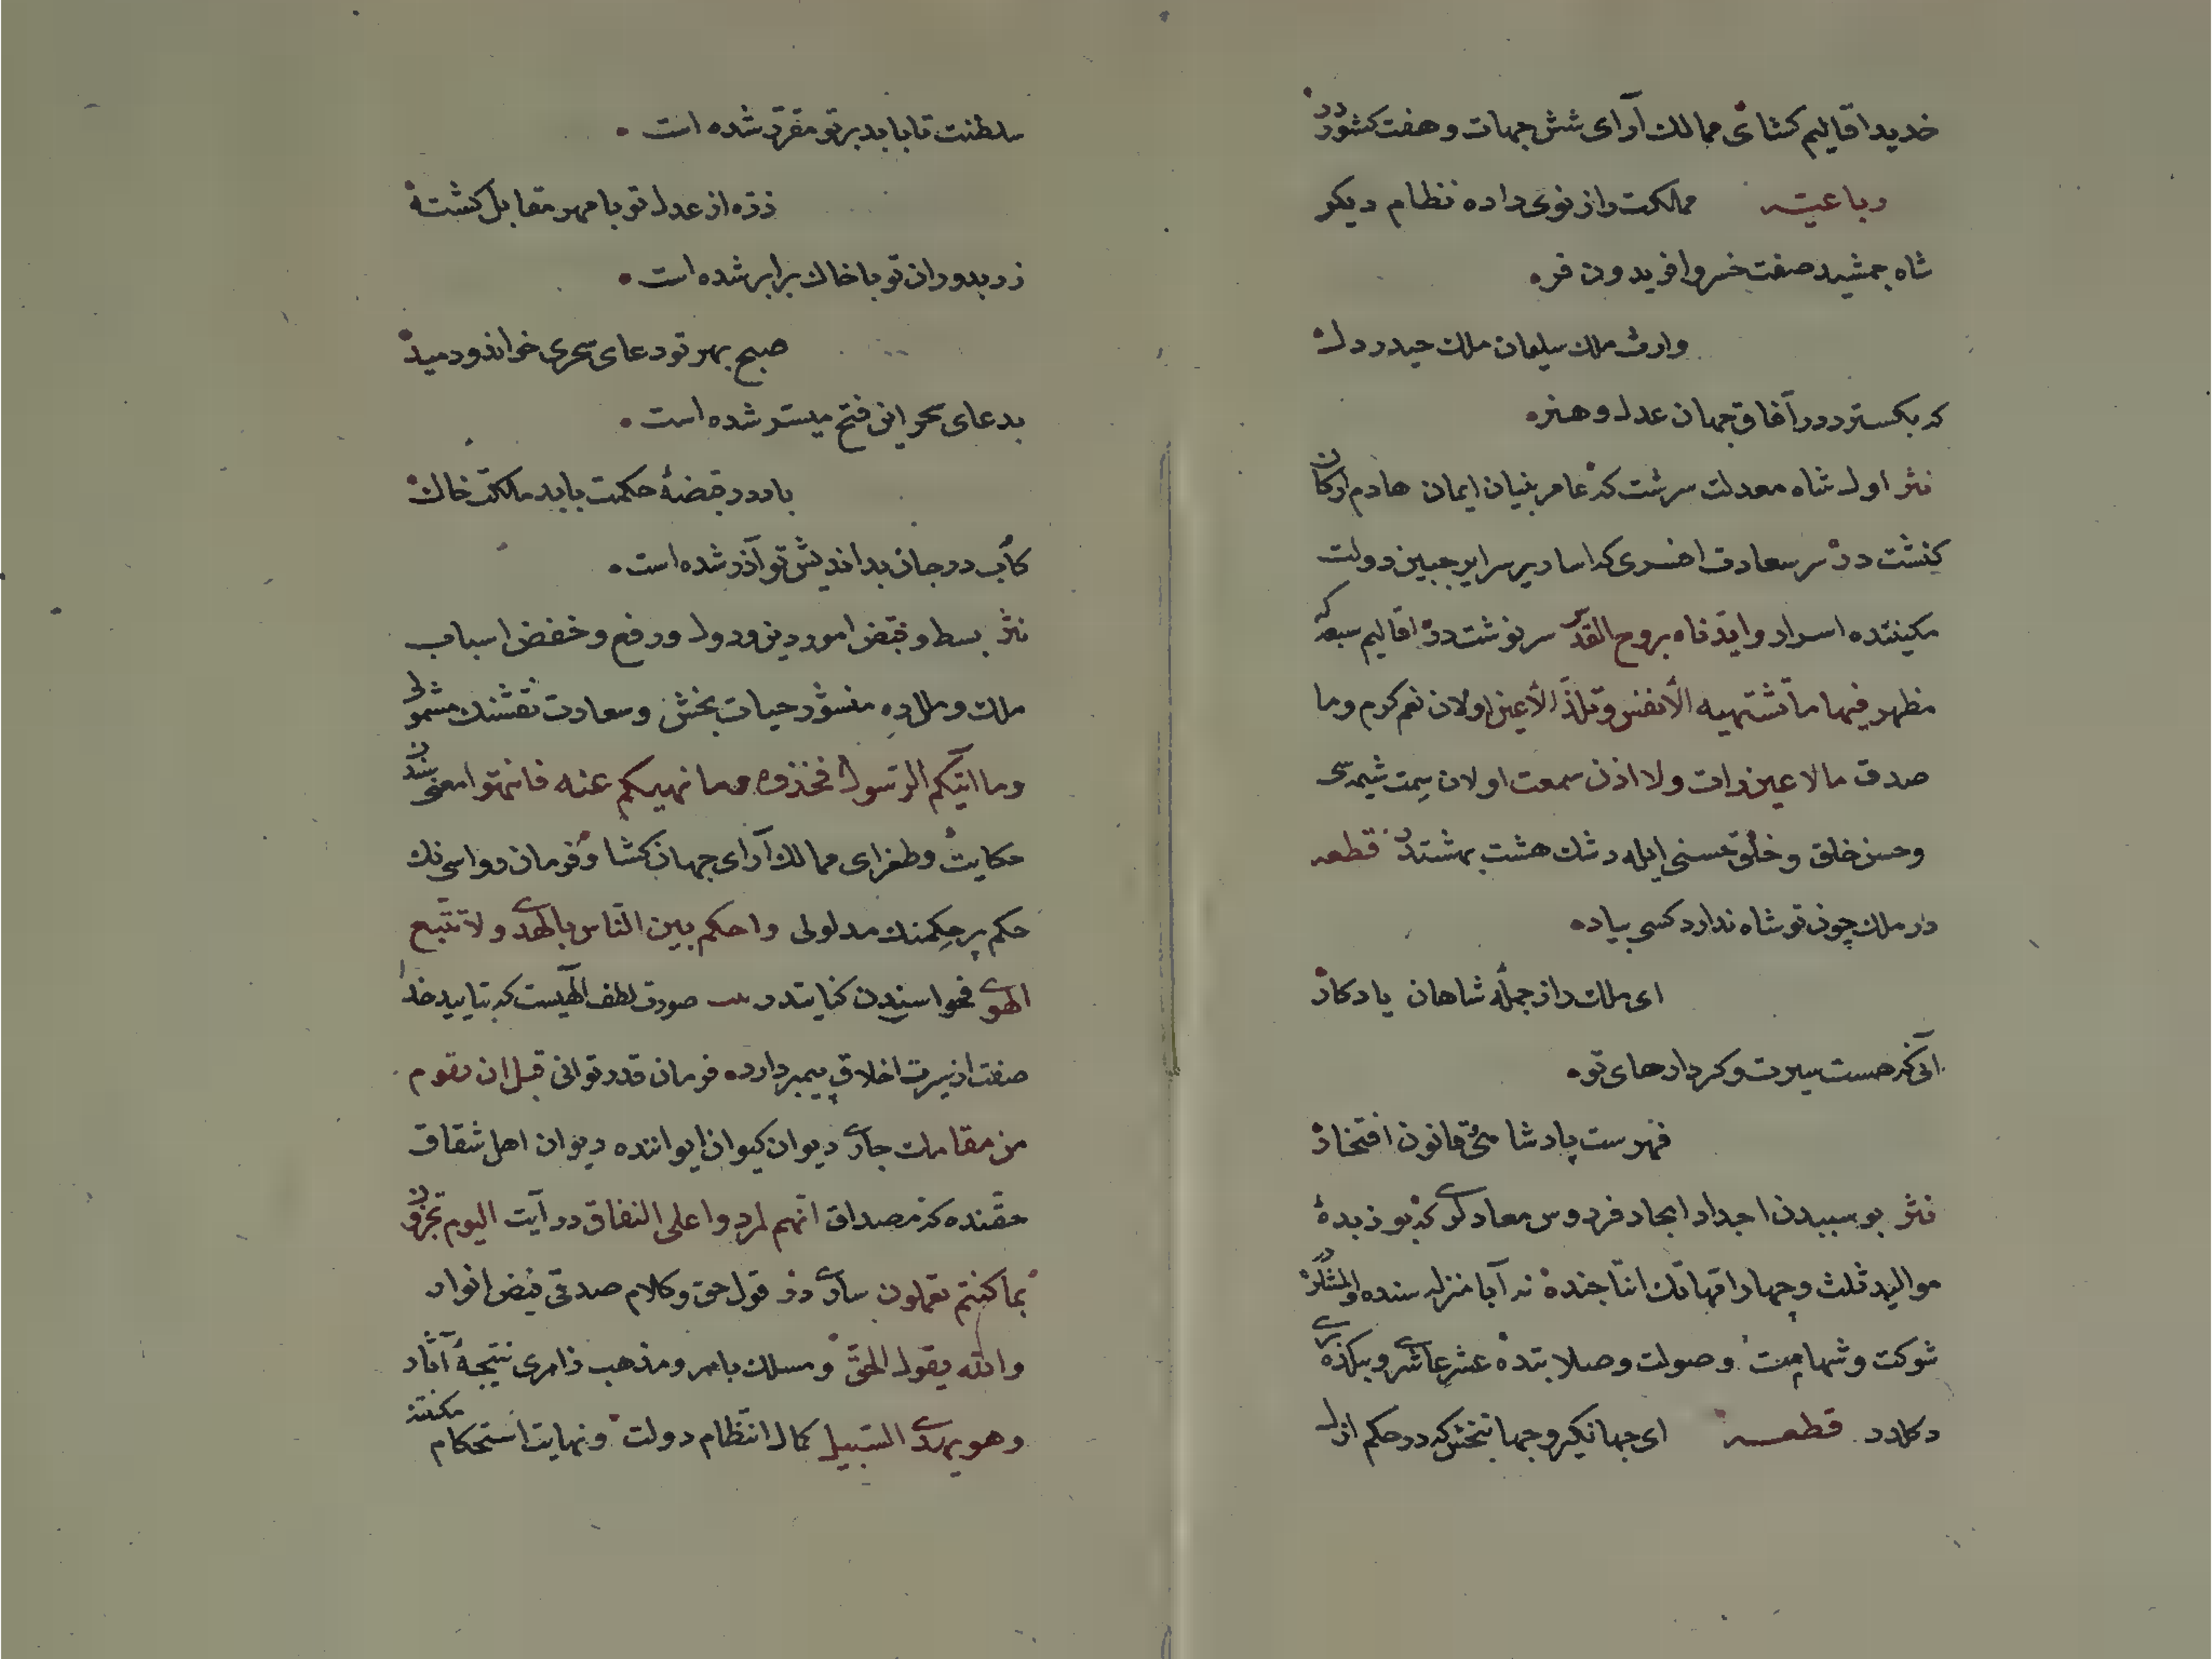 خدیو اقالیم کشای ممالك آرای شش جهات و هفت کشوردر
رباعیه ممالکت را از نوی داده نظام دیکر
شاه جمشید صفت خسرو افریدون فره
وارث ملك سلیمان ملك حیدر دل
که بکسترد در آفاق جهان عدل و هنره
نثر اول شاه معدلت سرشت که عامر بنیان ایمان هادم ارکان
کنشت در سر سعادت افسری که اساریر سرایر جبین دولت
مکینتده اسرار وایدناه بروح القدس سرنوشت در اقالیم سبعه که
مظهر فیها ما تشتهیه الأنفس وتلذ الأعین اولان نعم کرم وما
صدق ما لا عین رات ولا اذن سمعت اولان سمت شیمه سی
وحسن خلق و خلق حسنی ایله رشك هشت بهشتدر قطعه
در ملك چون تو شاه ندارد کسی بیاده
ای ملك را از جمله شاهان یادکار
آنی که هست سیرت و کردارهای توه
فهرست پادشاهی و قانون افتخار
نثر بو سببدن اجداد امجاد فردوس معادلری که بو زبدهٔ
موالید ثلث و چهار امهاتك انتاجنده نه آبا منزله سنده اولمشلردر
شوکت و شهامت و صولت و صلابتده عشر عاشری وبلکه ذره
دکلدر قطعه ای جهانکیر و جهانبخش که در حکم ازل
سلطنت تا بابد بر تو مقرر شده است
ذره از عدل تو با مهر مقابل کشته
زر بدوران تو با خاك برابر شده است
صبح بهر تو دعای سحری خواند و دمید
بدعای سحر این فتح میسر شده است
باد در قبضهٔ حکمت بابد مملکت خاك
کآب در جان بداندیش تو آذر شده است
نثر بسط و قبض امور دین و دول و رفع و خفض اسباب
ملك و ملل ده منشور حیات بخش و سعادت نقشنك مشمولی
وما اتیکم الرسول فخذوه وما نهیکم عنه فانتهوا مغموسندن
حکایت و طغرای ممالك آرای جهان کشا و فرمان رواسی نك
حکم پر حکمنك مدلولی واحکم بین الناس بالهدی ولا تتبع
الهوی فحواسندن کنایتدر صورت لطف الهیست که بتایید خدا
صفت از سیرت اخلاق پیمبر دارده فرمان قدر توانی قبل ان تقوم
من مقامك جاری دیوان کیوان ایواننده دیوان اهل شقاق
حقنده که مصداق انهم لمردوا علی النفاق در آیت الیوم تجزون
بما کنتم تعملون ساری در قول حق و کلام صدقی فیض انوار
والله یقول الحق و مسلك بامر و مذهب ذامری نتیجهٔ آثار
وهو یهدی السبیل کمال انتظام دولت و نهایت استحکام